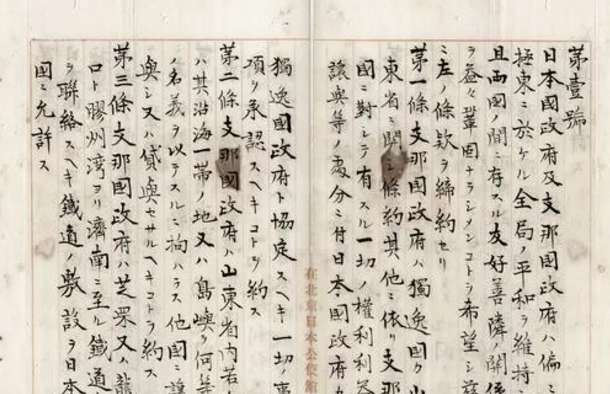 第壹號
日本國政府及支那國政府ハ偏ニ
極東ニ於ケル全局ノ平和ヲ維持シ
且兩國ノ間ニ存スル友好善隣ノ關係
ヲ益々鞏固ナラシメンコトヲ希望シ茲
ニ左ノ條欵ヲ締約セリ
第一條支那國政府ハ獨逸國カ山
東省ニ關シ條約其他ニ依リ支那
國ニ對シテ有スル一切ノ權利利益
讓與等ノ處分ニ付日本國政府カ
在北京日本公使館
獨逸國政府ト協定スヘキ一切ノ事
項ヲ承認スヘキコトヲ約ス
第二條支那國政府ハ山東省内若
ハ其沿海一帶ノ地又ハ島嶼ヲ何等
ノ名義ヲ以テスルニ拘ハラス他國ニ讓
與シ又ハ貸與セサルヘキコトヲ約ス
第三條支那國政府ハ芝罘又ハ龍
口ト膠州灣ヨリ濟南ニ至ル鐵道
ヲ聯絡スヘキ鐵道ノ敷設ヲ日本
國ニ允許ス